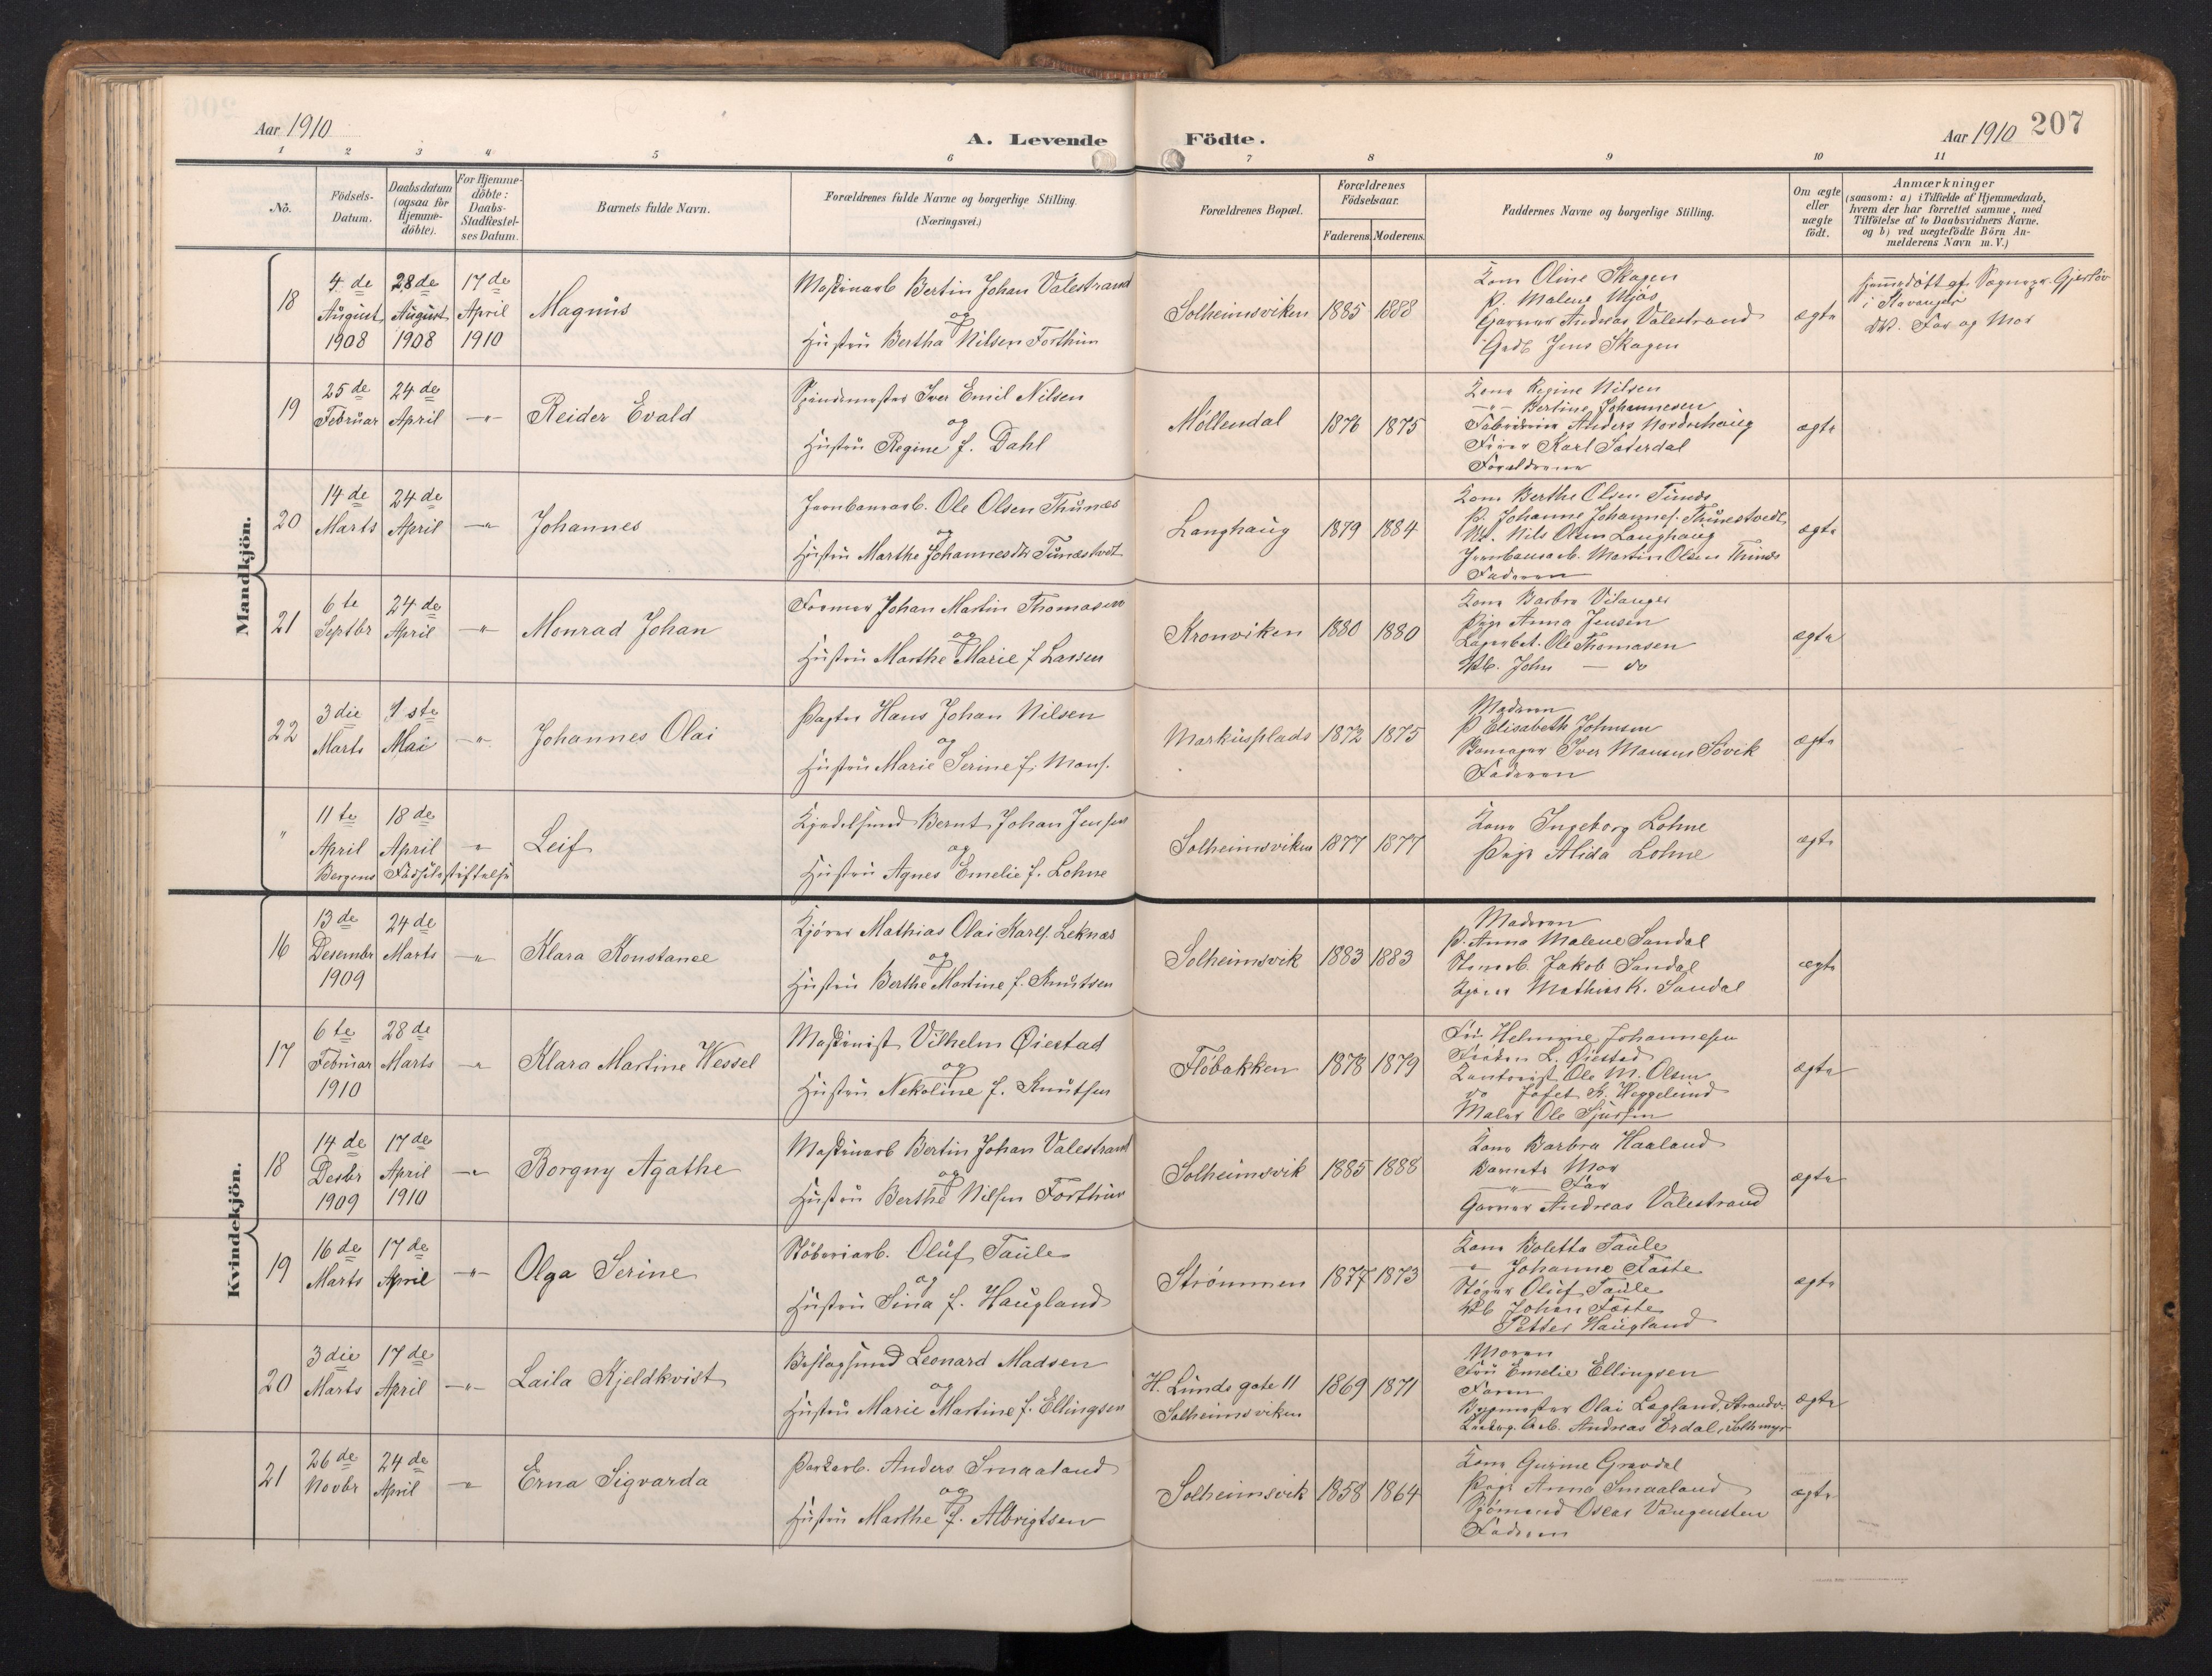 207
Aar 1910
A. Levende Födte.
Aar 1910
1 2 3 4 5 6 7 8 9 10 11
No.
Födsels-Datum.
Daabsdatum (ogsaa for Hjemme-döbte).
For Hjemme-döbte: Daabs-Stadfæstel-ses Datum.
Barnets fulde Navn.
Forældrenes fulde Navne og borgerlige Stilling.
(Næringsvei.)
Forældrenes Bopæl.
Forældrenes Födselsaar.
Faderens. Moderens.
Faddernes Navne og borgerlige Stilling.
Om ægte eller uægte födt.
Anmærkninger
(saasom: a) i Tilfælde af Hjemmedaab,
hvem der har forrettet samme, med
Tilföielse af to Daabsvidners Navne.
og b) ved uægtefödte Börn An-
melderens Navn m. V.)
Mandkjön.
18
4de August 1908
28de August 1908
17de April 1910
Magnus
Maskinarb Bertin Johan Valestrand
og
Hustru Bertha Nilsen Forthun
Solheimsviken 1885 1888
Kone Oline Skagen
P. Malene Mjøs
Garver Andreas Valestrand
Grdb Jens Skagen
ægte
Hjemmedøbt af Sognepr. Gjersløv
i Stavanger
DV. Far og Mor
19
25de Februar
24de April
—"—
Reider Evald
Spindemester Iver Emil Nilsen
og
Hustru Regine f. Dahl
Møllendal 1876 1875
Kone Regine Nilsen
—"— Bertine Johannesen
Anders Nordrehaug
Karl Säterdal
Forældrene
ægte
20
14de Marts
24de April
—"—
Johannes
Jernbanearb. Ole Olsen Thunæs
og
Hustru Marthe Johannesdtr Tunæstvet
Langhaug 1879 1884
Kone Berthe Olsen Tunæs
P. Johanne Johannes. Thunestvedt
Nils Olsen Langhaug
Jernbanearb. Martin Olsen Thunæs
Faderen
ægte
21
6te Septbr
24de April
—"—
Monrad Johan
Former Johan Martin Thomasen
og
Hustru Marthe Marie f Larsen
Kronviken 1880 1880
Kone Barbra Vilanger
Pige Anna Jensen
Lagerbet. Ole Thomasen
John — do
ægte
22
3die Marts
1ste Mai
—"—
Johannes Olai
Pagter Hans Johan Nilsen
og
Hustru Marie Serine f. Mons.
Markusplads 1872 1875
Moderen
P Elisabeth Johnsen
Iver Monsen Søvik
Faderen
ægte
"
11te April
18de April
"
Bergens Fødselsstiftelse
Leif
Kjedelsmed Bernt Johan Jensen
og
Hustru Agnes Emelie f. Lohne
Solheimsviken 1877 1877
Kone Ingeborg Lohne
Pige Alida Lohne
ægte
Kvindekjön.
16
13de Desembr 1909
24de Marts
—"—
Klara Konstance
Kjører Mathias Olai Karls. Leknæs
og
Hustru Berthe Martine f. Knutsen
Solheimsvik 1883 1883
Moderen
P. Anna Malene Sandal
Jakob Sandal
Kjører Mathias K. Sandal
ægte
17
6te Februar 1910
28de Marts
—"—
Klara Martine Wessel
Maskinist Vilhelm Øiestad
og
Hustru Nekoline f. Knutsen
Fløbakken 1878 1879
Fru Helmine Johannesen
Frøken L. Øiestad
Kontorist Ole M. Olsen
do Jofet K. Heggelund
Maler Ole Sjursen
ægte
18
14de Desbr 1909
17de April 1910
—"—
Borgny Agathe
Maskinarb Bertin Johan Valestrand
og
Hustru Berthe Nilsen Forthun
Solheimsvik 1885 1888
Kone Barbra Haaland
Barnets Mor
—"— Far
Garver Andreas Valestrand
ægte
19
16de Marts
17de April
—"—
Olga Serine
Støberiarb. Oluf Taule
og
Hustru Sina f. Haugland
Strømmen 1877 1873
Kone Boletta Taule
—"— Johanne Faste
Støber Oluf Taule
Johan Faste
Petter Haugland
ægte
20
3die Marts
17de April
—"—
Laila Kjeldkvist
Beslagsmed Leonard Madsen
og
Hustru Marie Martine f. Ellingsen
H. Lunde gate 11
Solheimsviken
1869 1871
Moren
Fru Emelie Ellingsen
Faren
Bygmester Olai Lagland, Strandv.
Andreas Erdal, Solhmyr
ægte
21
26de Novbr
24de April
—"—
Erna Sigvarda
Anders Smaaland
og
Hustru Marthe f. Albrigtsen
Solheimsvik 1858 1864
Kone Gurine Gravdal
Pige Anna Smaaland
Sjømand Oscar Vangensten
Faderen
ægte